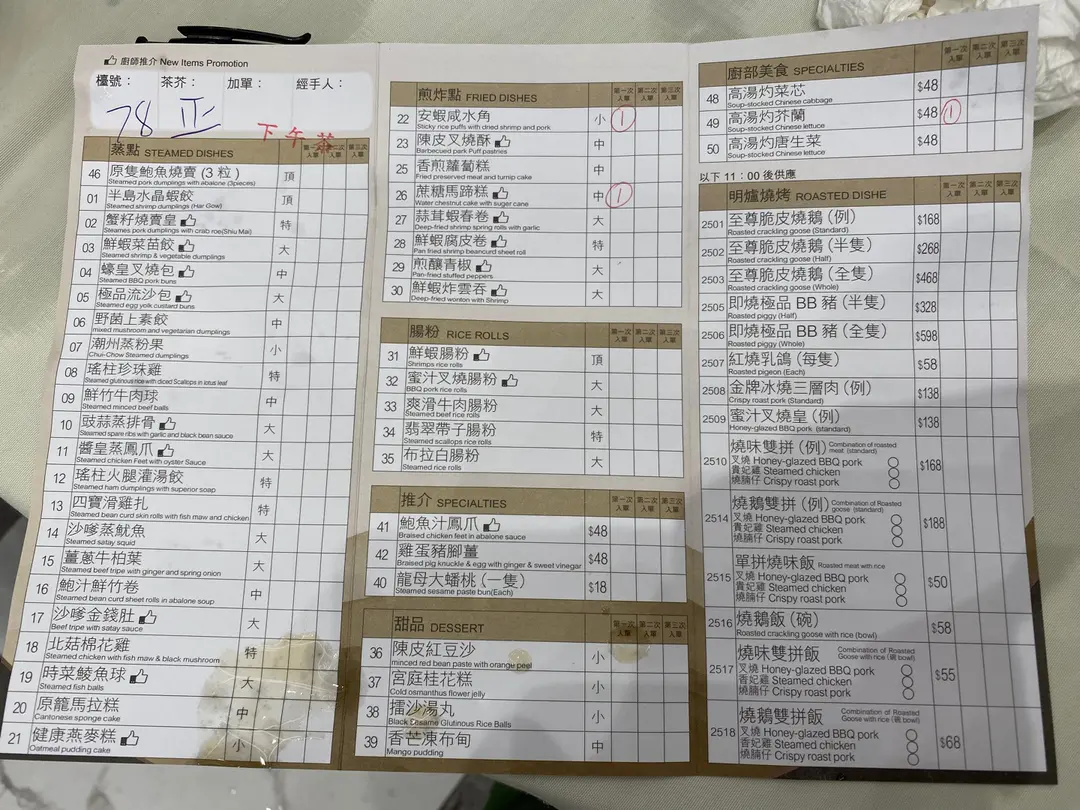 廚師推介 New Items Promotion
檯號： 茶芥： 加單： 經手人：
78 正
下午茶
蒸點 STEAMED DISHES 第一次入單 第二次入單 第三次入單
46 原隻鮑魚燒賣 (3 粒) 頂
Steamed pork dumplings with abalone (3pieces)
01 半島水晶蝦餃 頂
Steamed shrimp dumplings (Har Gow)
02 蟹籽燒賣皇 特
Steamed pork dumplings with crab roe(Shiu Mai)
03 鮮蝦菜苗餃 大
Steamed shrimp & vegetable dumplings
04 蠔皇叉燒包 中
Steamed BBQ pork buns
05 極品流沙包 大
Steamed egg yolk custard buns
06 野菌上素餃 中
mixed mushroom and vegetarian dumplings
07 潮州蒸粉果 小
Chui-Chow Steamed dumplings
08 瑤柱珍珠雞 特
Steamed glutinous rice with diced Scallops in lotus leaf
09 鮮竹牛肉球 中
Steamed minced beef balls
10 豉蒜蒸排骨 大
Steamed spare ribs with garlic and black bean sauce
11 醬皇蒸鳳爪 大
Steamed chicken Feet with oyster Sauce
12 瑤柱火腿灌湯餃 特
Steamed ham dumplings with superior soap
13 四寶滑雞扎 特
Steamed bean curd skin rolls with fish maw and chicken
14 沙嗲蒸魷魚 大
Steamed satay squid
15 薑蔥牛柏葉 大
Steamed beef tripe with ginger and spring onion
16 鮑汁鮮竹卷 中
Steamed bean curd sheet rolls in abalone soup
17 沙嗲金錢肚 大
Beef tripe with satay sauce
18 北菇棉花雞 特
Steamed chicken with fish maw & black mushroom
19 時菜鯪魚球 大
Steamed fish balls
20 原籠馬拉糕 中
Cantonese sponge cake
21 健康燕麥糕 小
Oatmeal pudding cake
煎炸點 FRIED DISHES 第一次入單 第二次入單 第三次入單
22 安蝦咸水角 小 1
Sticky rice puffs with dried shrimp and pork
23 陳皮叉燒酥 中
Barbecued park Puff pastries
25 香煎蘿蔔糕 中
Fried preserved meat and turnip cake
26 蔗糖馬蹄糕 中 1
Water chestnut cake with sugar cane
27 蒜茸蝦春卷 大
Deep-fried shrimp spring rolls with garlic
28 鮮蝦腐皮卷 特
Pan fried shrimp beancurd sheet roll
29 煎釀青椒 大
Pan-fried stuffed peppers
30 鮮蝦炸雲吞 大
Deep-fried wonton with Shrimp
腸粉 RICE ROLLS 第一次入單 第二次入單 第三次入單
31 鮮蝦腸粉 頂
Shrimps rice rolls
32 蜜汁叉燒腸粉 大
BBQ pork rice rolls
33 爽滑牛肉腸粉 大
Steamed beef rice rolls
34 翡翠帶子腸粉 特
Steamed scallops rice rolls
35 布拉白腸粉 大
Steamed rice rolls
推介 SPECIALTIES 第一次入單 第二次入單 第三次入單
41 鮑魚汁鳳爪 $48
Braised chicken feet in abalone sauce
42 雞蛋豬腳薑 $48
Braised pig knuckle & egg with ginger & sweet vinegar
40 龍母大蟠桃 (一隻) $18
Steamed sesame paste bun(Each)
甜品 DESSERT 第一次入單 第二次入單 第三次入單
36 陳皮紅豆沙 小
minced red bean paste with orange peel
37 宮庭桂花糕 小
Cold osmanthus flower jelly
38 擂沙湯丸 小
Black Sesame Glutinous Rice Balls
39 香芒凍布甸 中
Mango pudding
廚部美食 SPECIALTIES 第一次入單 第二次入單 第三次入單
48 高湯灼菜芯 $48
Soup-stocked Chinese cabbage
49 高湯灼芥蘭 $48 1
Soup-stocked Chinese lettuce
50 高湯灼唐生菜 $48
Soup-stocked Chinese lettuce
以下 11：00 後供應
明爐燒烤 ROASTED DISHE 第一次入單 第二次入單 第三次入單
2501 至尊脆皮燒鵝 (例) $168
Roasted crackling goose (Standard)
2502 至尊脆皮燒鵝 (半隻) $268
Roasted crackling goose (Half)
2503 至尊脆皮燒鵝 (全隻) $468
Roasted crackling goose (Whole)
2505 即燒極品 BB 豬 (半隻) $328
Roasted piggy (Half)
2506 即燒極品 BB 豬 (全隻) $598
Roasted piggy (Whole)
2507 紅燒乳鴿 (每隻) $58
Roasted pigeon (Each)
2508 金牌冰燒三層肉 (例) $138
Crispy roast pork (Standard)
2509 蜜汁叉燒皇 (例) $138
Honey-glazed BBQ pork (standard)
2510 燒味雙拼 (例) Combination of roasted meat (standard) $168
叉燒 Honey-glazed BBQ pork
貴妃雞 Steamed chicken
燒腩仔 Crispy roast pork
2514 燒鵝雙拼 (例) Combination of Roasted goose (standard) $188
叉燒 Honey-glazed BBQ pork
貴妃雞 Steamed chicken
燒腩仔 Crispy roast pork
2515 單拼燒味飯 Roasted meat with rice $50
叉燒 Honey-glazed BBQ pork
貴妃雞 Steamed chicken
燒腩仔 Crispy roast pork
2516 燒鵝飯 (碗) $58
Roasted crackling goose with rice (bowl)
2517 燒味雙拼飯 Combination of Roasted Goose with rice (碗 bowl) $55
叉燒 Honey-glazed BBQ pork
香妃雞 Steamed chicken
燒腩仔 Crispy roast pork
2518 燒鵝雙拼飯 Combination of Roasted Goose with rice (碗 bowl) $68
叉燒 Honey-glazed BBQ pork
香妃雞 Steamed chicken
燒腩仔 Crispy roast pork